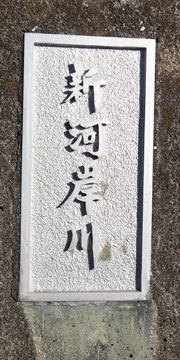 新河岸川